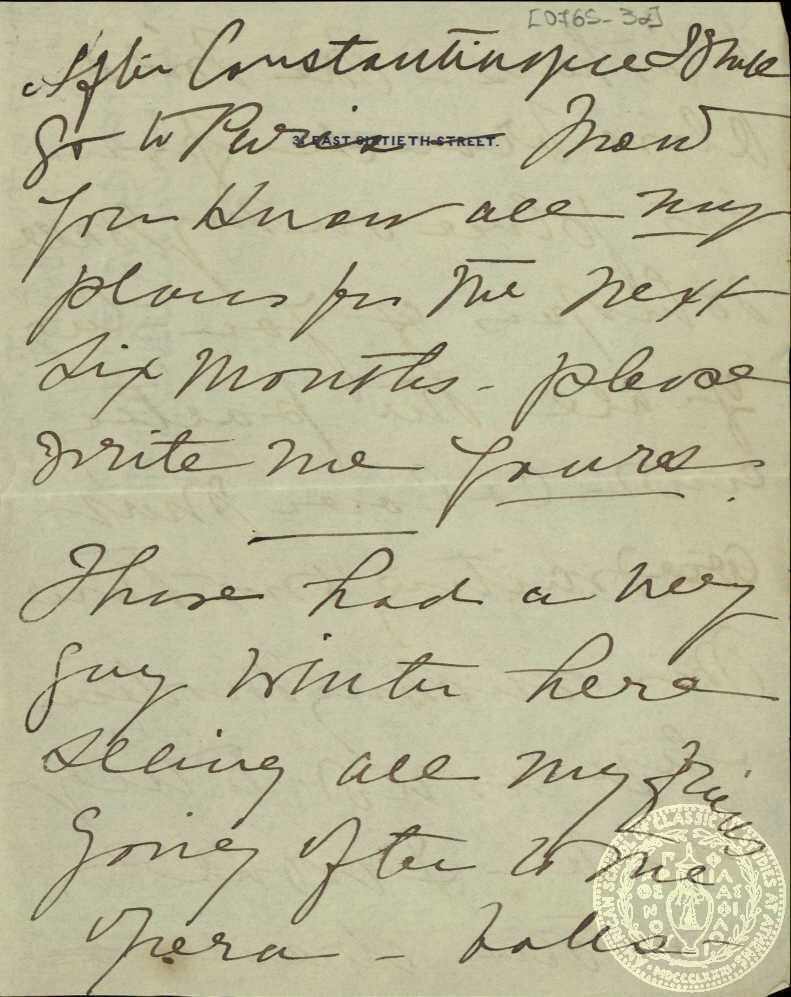 [0765-32]
After Constantinople I shall
3 EAST SIXTIETH STREET.
go to Paris - Now
you know all my
plans for the next
six months - please
write me yours.
I have had a very
gay winter here
seeing all my friends
going often to the
opera - balls -
AMERICAN SCHOOL OF CLASSICAL STUDIES AT ATHENS
MDCCCLXXXI